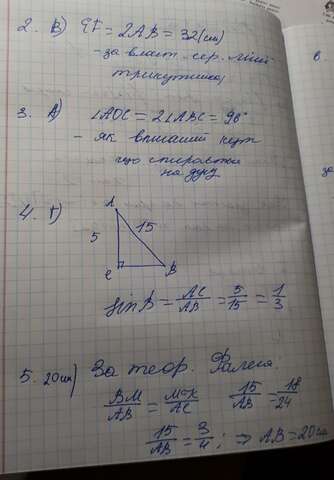 2. В) EF = 2AB = 32(см)
- за власт. сер. лінії
трикутника
3. А) ∠AOC = 2∠ABC = 96°
- як вписаний кут
що спирається
на дугу
4. Г)
A
5
15
C
B
sin B = AC/AB = 5/15 = 1/3
5. 20см) За теор. Фалеса.
BM/AB = MK/AC 15/AB = 18/24
15/AB = 3/4; ⇒ AB = 20см
в.
за